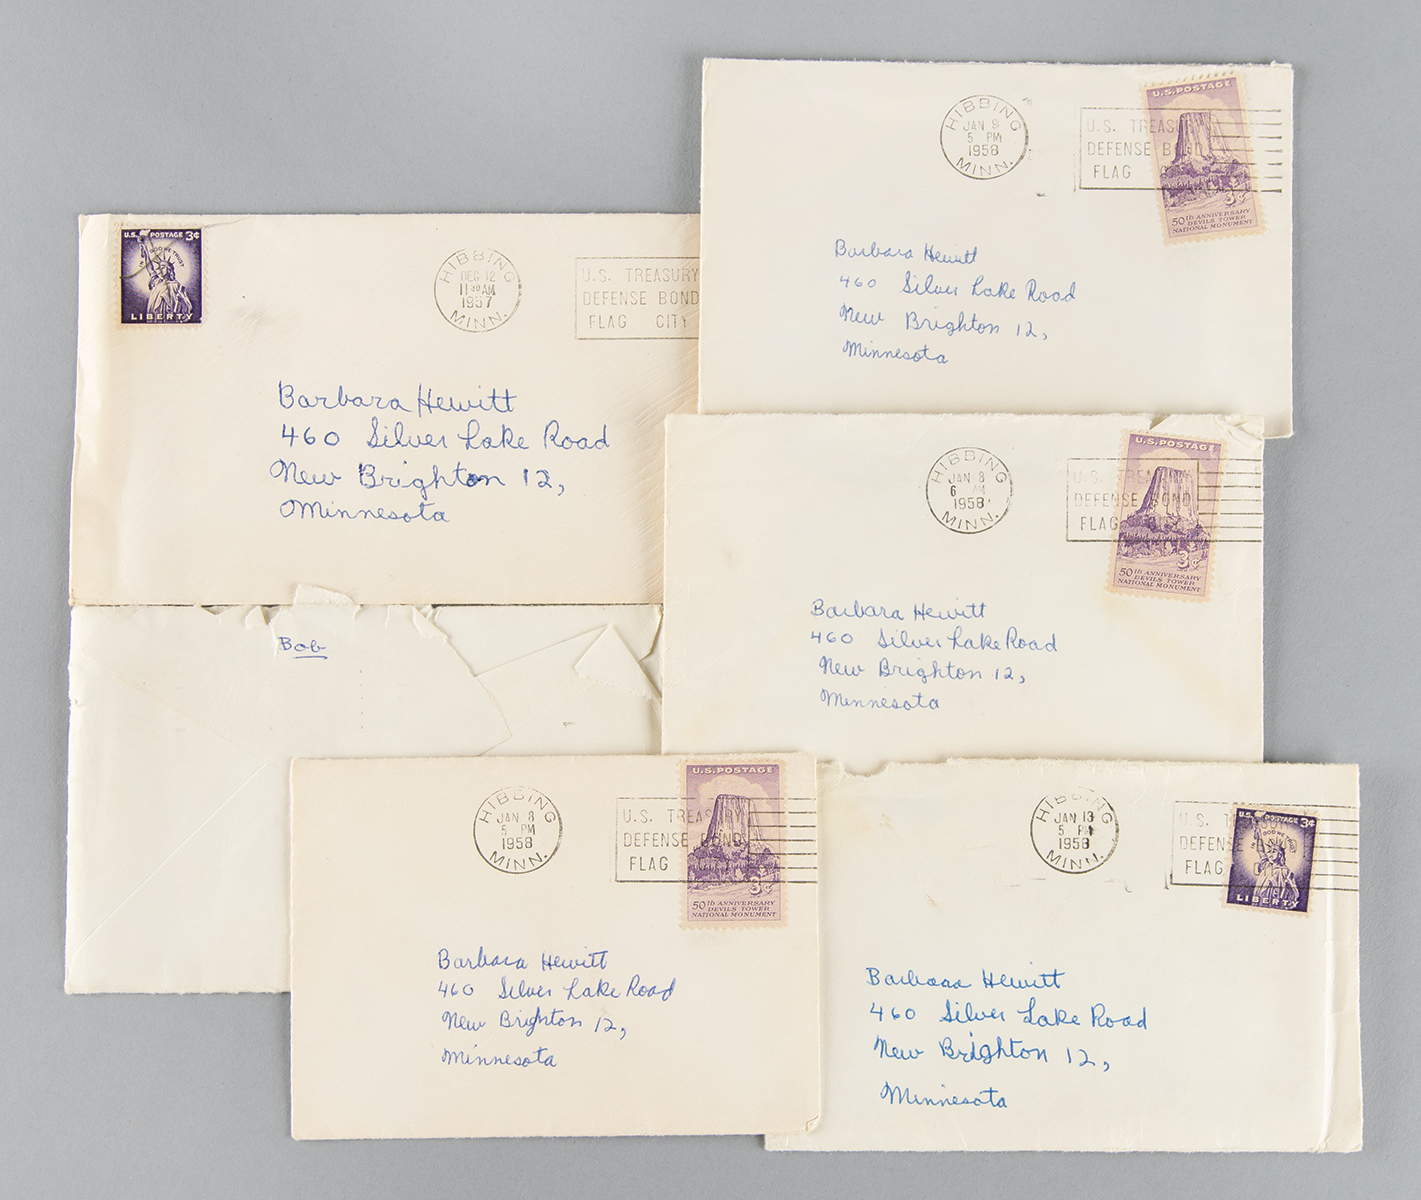 U.S. POSTAGE 3¢
IN GOD WE TRUST
LIBERTY
HIBBING
DEC 12
11 30 AM
1957
MINN.
U.S. TREASURY
DEFENSE BOND
FLAG CITY
Barbara Hewitt
460 Silver Lake Road
New Brighton 12,
Minnesota
Bob
HIBBING
JAN 9
5 PM
1958
MINN.
U.S. TREASU
DEFENSE BOND
FLAG
U.S. POSTAGE
3¢
50th ANNIVERSARY
DEVILS TOWER
NATIONAL MONUMENT
Barbara Hewitt
460 Silver Lake Road
New Brighton 12,
Minnesota
HIBBING
JAN 8
6 AM
1958
MINN.
U.S. TREASURY
DEFENSE BOND
FLAG CITY
U.S. POSTAGE
3¢
50th ANNIVERSARY
DEVILS TOWER
NATIONAL MONUMENT
Barbara Hewitt
460 Silver Lake Road
New Brighton 12,
Minnesota
HIBBING
JAN 8
5 PM
1958
MINN.
U.S. TREASURY
DEFENSE BOND
FLAG
U.S. POSTAGE
3¢
50th ANNIVERSARY
DEVILS TOWER
NATIONAL MONUMENT
Barbara Hewitt
460 Silver Lake Road
New Brighton 12,
Minnesota
HIBBING
JAN 13
5 PM
1958
MINN.
U.S. T
DEFENSE
FLAG
U.S. POSTAGE 3¢
IN GOD WE TRUST
LIBERTY
Barbara Hewitt
460 Silver Lake Road
New Brighton 12,
Minnesota